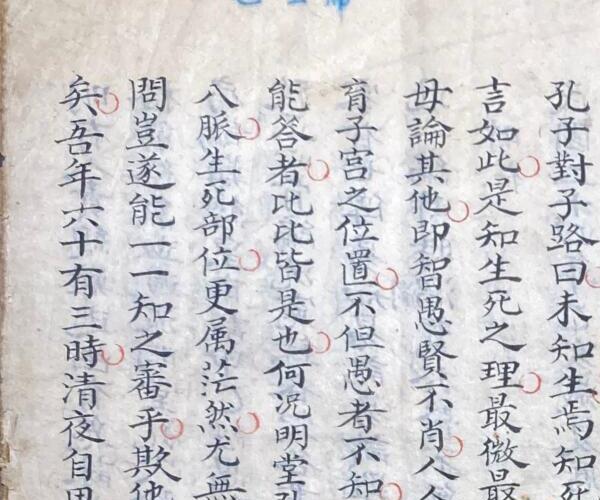 孔子對子路曰未知生焉知死
言如此是知生死之理最微最
毋論其他即智愚賢不肖人
育子宮之位置不但愚者不知
能答者比比皆是也何况明堂孔
八脈生死部位更属茫然尤無
問豈遂能一一知之審乎欺他
矣吾年六十有三時清夜自思